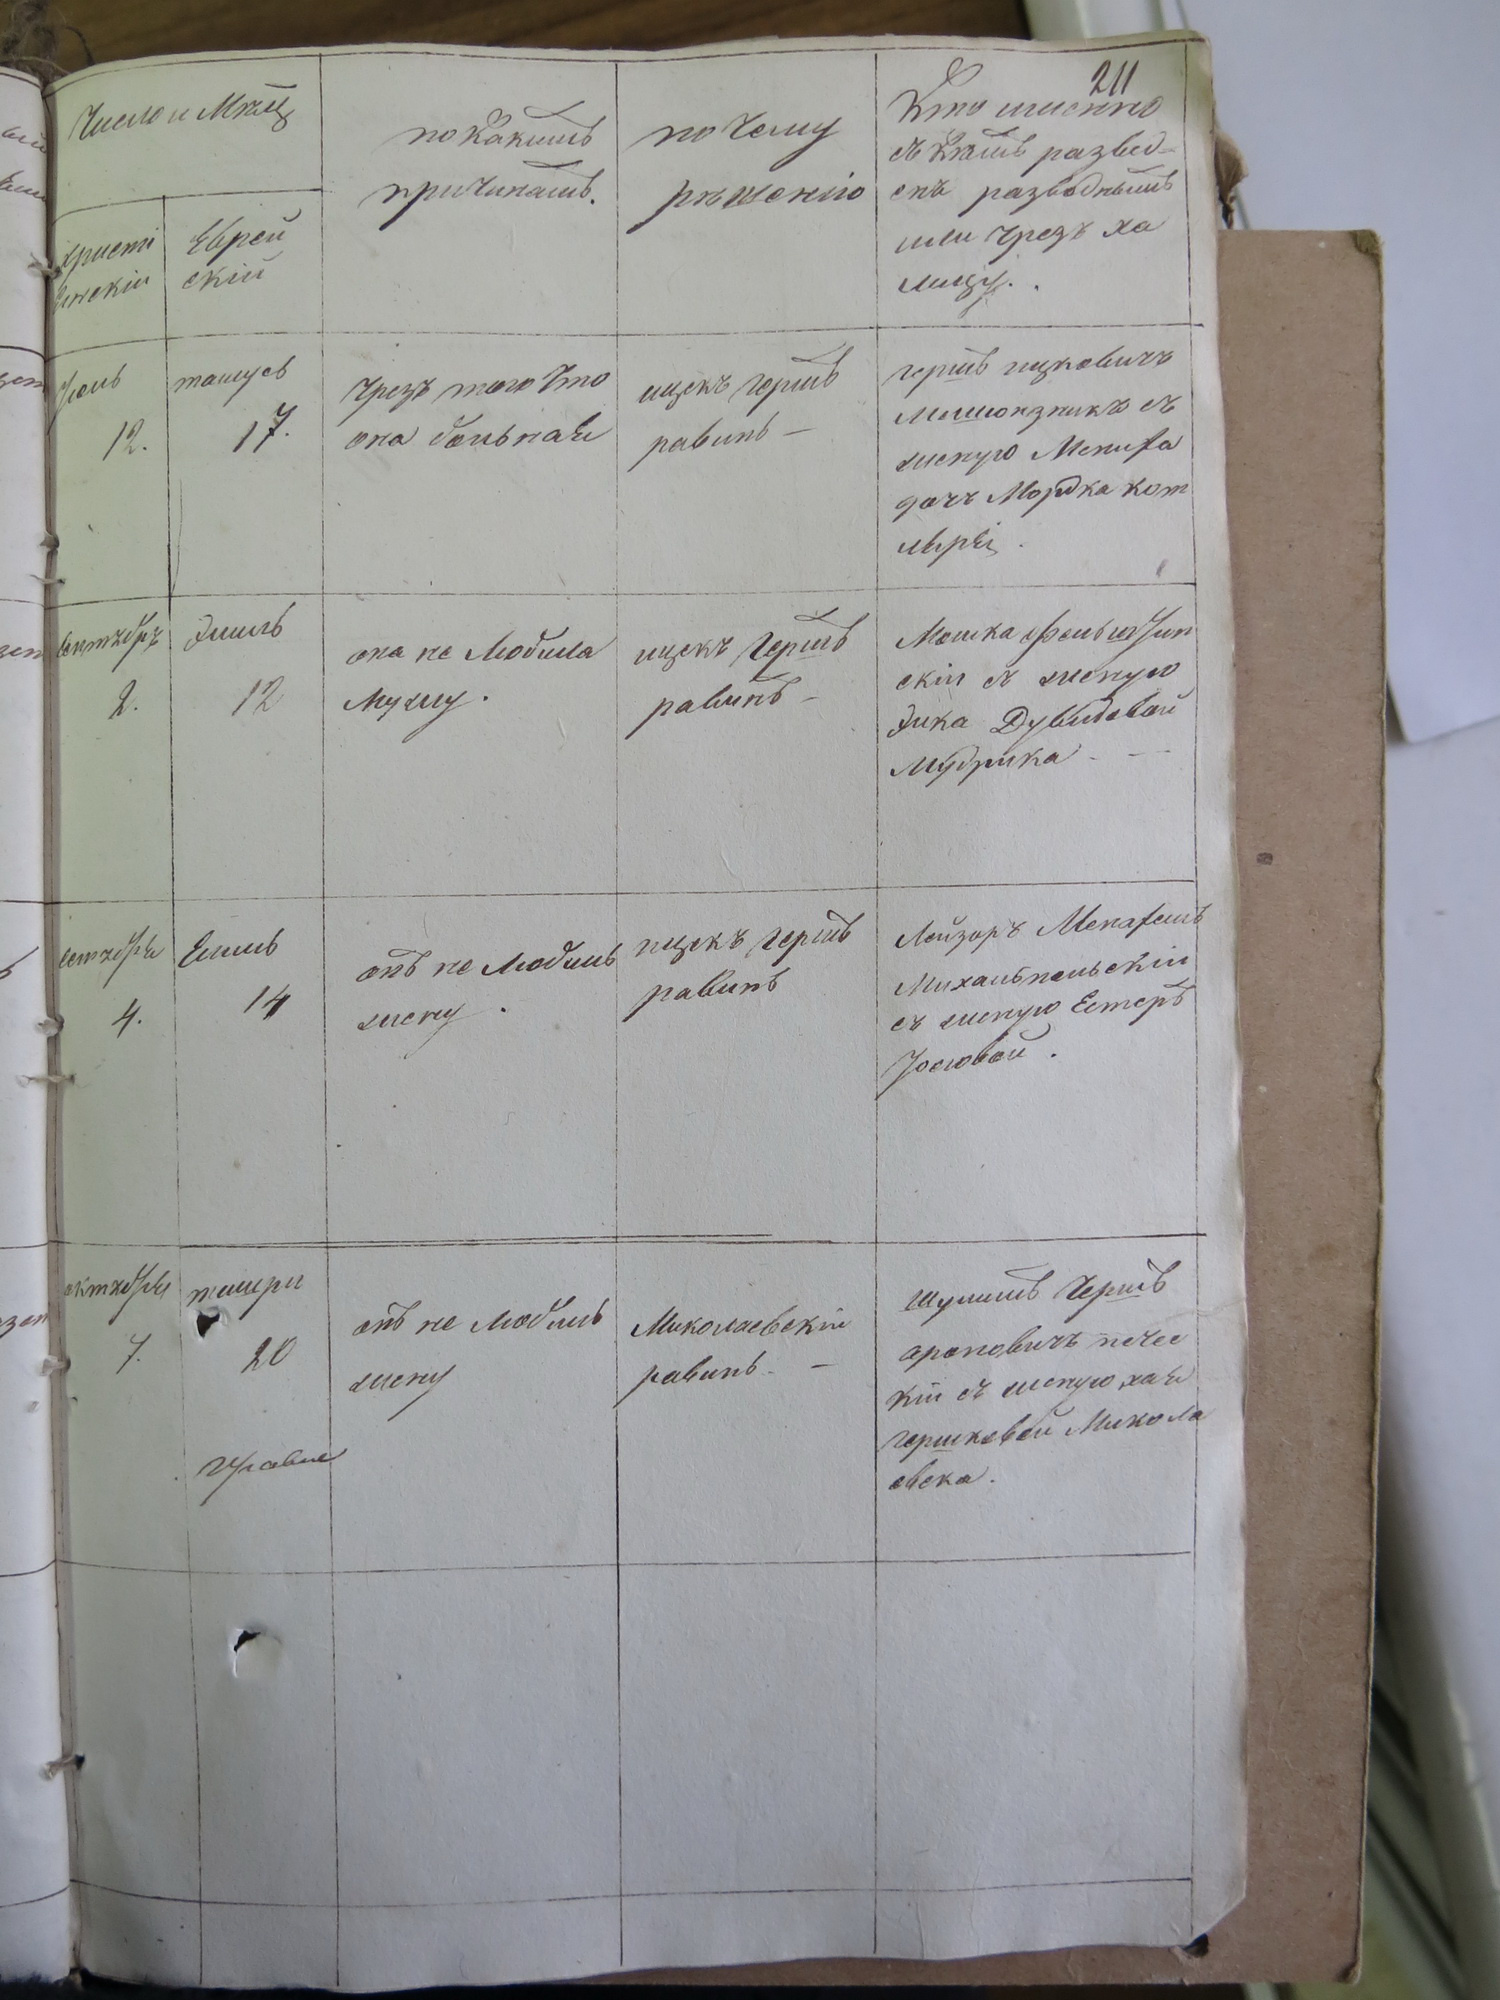 211
Число и Мѣсяц
по какимъ
причинамъ.
по чему
рѣшению
Кто именно
съ кѣмъ развед-
енъ разводнымъ
или чрезъ ха
лицу.
христі
янскій
Еврей
скій
Июль
12.
тамусъ
17.
чрезъ того что
она больная
ицекъ Гершъ
равинъ —
Гершъ ицковичъ
съ
женую Мениха
дочъ Мордка кот
лярѣ.
сентябръ
2.
Элиль
12
она не любила
мужу.
ицекъ Гершъ
равинъ —
Мошка
скій съ женую
Эика Дувидовой
Мудрика - —
сентября
4.
Елиль
14
онъ не любилъ
жену.
ицекъ Гершъ
равинъ
Лейзоръ Менахемъ
Михальпольскій
съ женую Естеръ
Іосіовой.
октября
7.
тишри
20
онъ не любилъ
жену
Миколаевскій
равинъ. —
Шулимъ Гершъ
ароновичъ
кій съ женую хая
Гершковой Микола
евска.